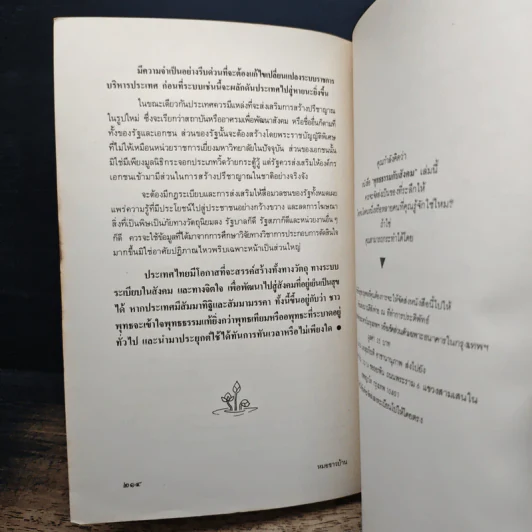 มีความจำเป็นอย่างรีบด่วนที่จะต้องแก้ไขเปลี่ยนแปลงระบบราชการ
บริหารประเทศ ก่อนที่ระบบเช่นนี้จะผลักดันประเทศไปสู่หายนะยิ่งขึ้น
ในขณะเดียวกันประเทศควรมีแหล่งที่จะส่งเสริมการสร้างปรีชาญาณ
ในรูปใหม่ ซึ่งจะเรียกว่าสถาบันหรืออาศรมเพื่อพัฒนาสังคม หรือชื่ออื่นก็ตามที
ทั้งของรัฐและเอกชน ส่วนของรัฐนั้นจะต้องสร้างโดยพระราชบัญญัติพิเศษ
ที่ไม่ให้เหมือนหน่วยราชการเยี่ยงมหาวิทยาลัยในปัจจุบัน ส่วนของเอกชนนั้น
มิใช่มีเพียงมูลนิธิกระจอกประเภทวิ่งด้วยกระตู้รู้ แต่รัฐควรส่งเสริมให้องค์กร
เอกชนเข้ามามีส่วนในการสร้างปรีชาญาณในชาติอย่างจริงจัง
จะต้องมีกฎระเบียบและการส่งเสริมให้สื่อมวลชนของรัฐทั้งหมดเผย
แพร่ความรู้ที่มีประโยชน์ไปสู่ประชาชนอย่างกว้างขวาง และลดการโฆษณา
สิ่งที่เป็นพิษเป็นภัยทางวัตถุนิยมลง รัฐบาลก็ดี รัฐสภาก็ดีและหน่วยงานอื่น ๆ
ก็ดี ควรจะใช้ข้อมูลที่ได้มาจากการศึกษาวิจัยทางวิชาการประกอบการตัดสินใจ
มากขึ้นมิใช่อาศัยปฏิภาณไหวพริบเฉพาะหน้าเป็นส่วนใหญ่
ประเทศไทยมีโอกาสที่จะสรรค์สร้างทั้งทางวัตถุ ทางระบบ
ระเบียบในสังคม และทางจิตใจ เพื่อพัฒนาไปสู่สังคมที่อยู่เย็นเป็นสุข
ได้ หากประเทศมีสัมมาทิฐิและสัมมามรรคา ทั้งนี้ขึ้นอยู่กับว่า ชาว
พุทธจะเข้าใจพุทธธรรมแท้ยิ่งกว่าพุทธเทียมหรือออพุทธที่ระบาดอยู่
ทั่วไป และนำมาประยุกต์ใช้ได้ทันการทันเวลาหรือไม่เพียงใด ●
หมอชาวบ้าน
๒๑๔
คุณกำลังคิดว่า
หนังสือ "พุทธธรรมกับสังคม" เล่มนี้
ควรจะจัดส่งเป็นของที่ระลึกให้
ที่คุณรู้จักใช่ไหม?
ถ้าใช่
คุณสามารถกระทำได้โดย
ให้จัดส่งหนังสือนี้ไปให้
แขวงสามเสนใน